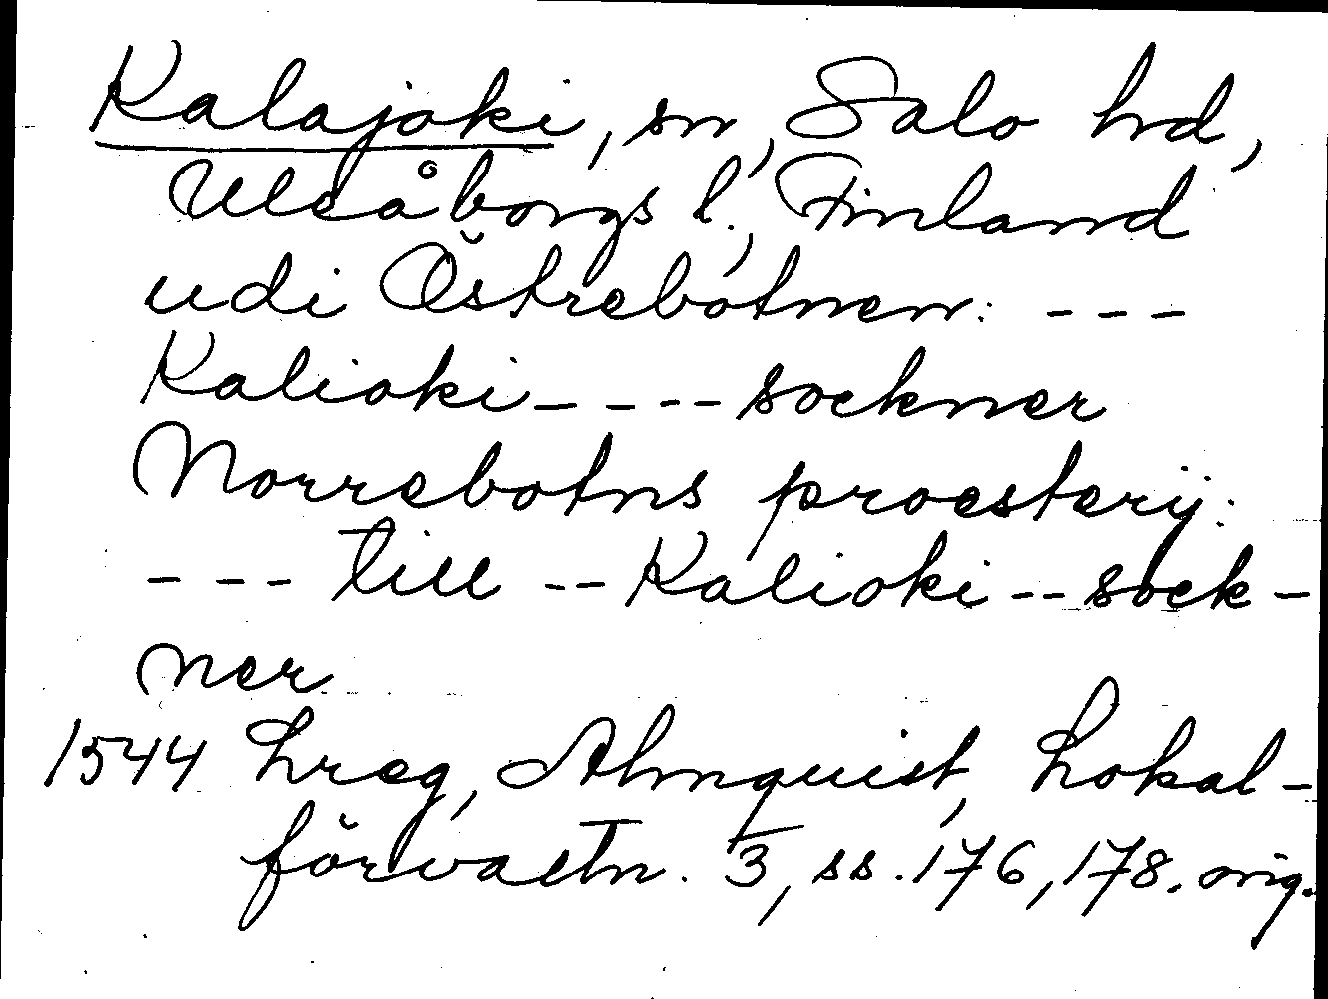 Kalajoki, sn, Salo hd,
Uleåborgs l., Finland
udi Östrebotnen: ---
Kalioki ---- sockner
Norrebotns proestery:
--- till -- Kalioki -- sock-
ner
1544 Lreg, Almquist, Lokal-
förvaltn. 3, ss. 176, 178. orig.